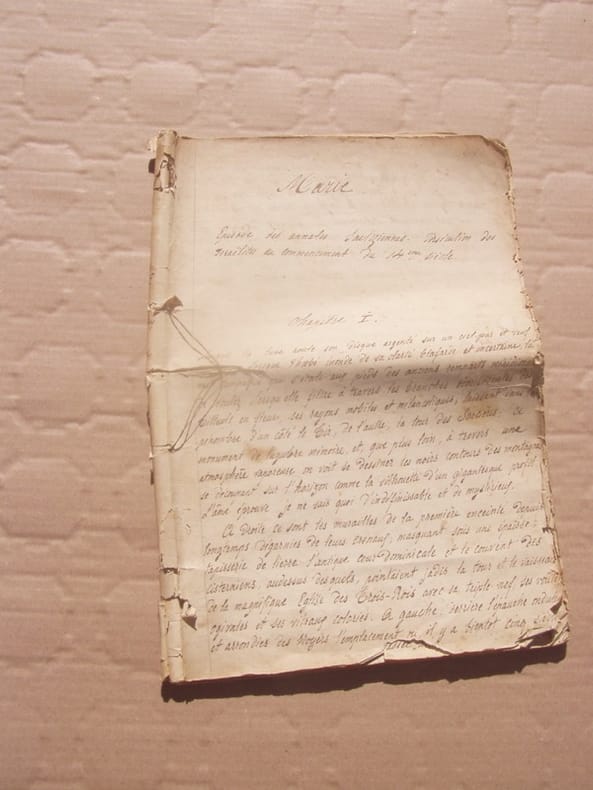 Marie
Episode des annales Persécution des
Israélites au commencement du 14ème siècle.
Chapitre I.
lune roule son disque argenté sur un ciel pur et
Phébé inonde de sa clarté blafarde et incertaine, la
qui s'étale aux pieds des anciens remparts
lorsqu'elle filtre à travers les branches
tilleuls en fleurs, ses rayons mobiles et mélancoliques, laissant dans la
pénombre d'un côté le Tir, de l'autre, la tour des Sorciers. Ce
monument de lugubre mémoire, et, que plus loin, à travers une
atmosphère vaporeuse on voit se dessiner les noirs contours des montagnes
se découpant sur l'horizon comme la silhouette d'un gigantesque profil
l'âme éprouve je ne sais quoi d'indéfinissable et de mystérieux.
A droite ce sont les murailles de la première enceinte depuis
longtemps dégarnies de leurs créneaux, masquant sous une épaisse
tapisserie de lierre l'antique cour dominicale et le couvent des
Cisterniens, audessus desquels, pointaient jadis la tour et le vaisseau
de la magnifique Eglise des Trois-Rois avec sa triple nef ses voûtes
ogivales et ses vitraux coloriés. A gauche, derrière l'épaule
et arrondie des Noyers l'emplacement où il y a bientôt cinq